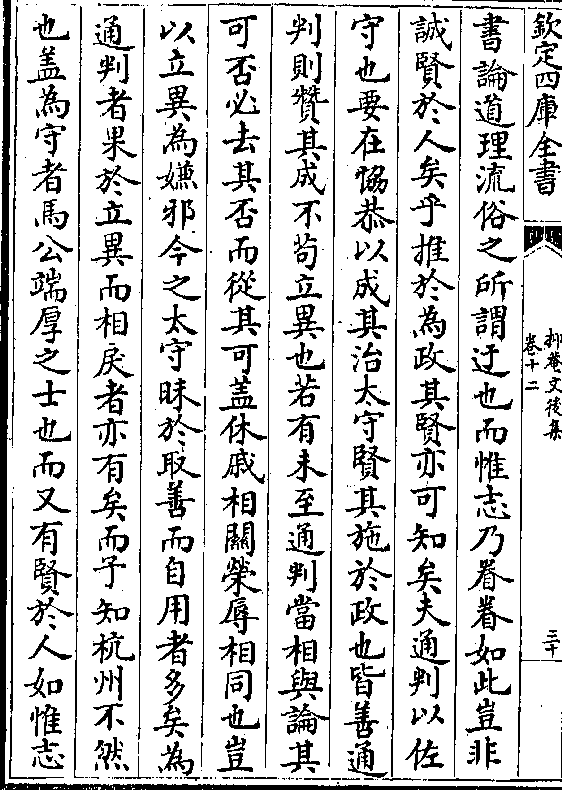 欽定四庫全書
抑菴文後集
卷十二
三十
書論道理流俗之所謂迂也而惟志乃眷眷如此豈非
誠賢於人矣乎推於為政其賢亦可知矣夫通判以佐
守也要在恊恭以成其治太守賢其施於政也皆善通
判則贊其成不苟立異也若有未至通判當相與論其
可否必去其否而從其可蓋休戚相關榮辱相同也豈
以立異為嫌邪今之太守昧於取善而自用者多矣為
通判者果於立異而相戾者亦有矣而予知杭州不然
也盖為守者馬公端厚之士也而又有賢於人如惟志